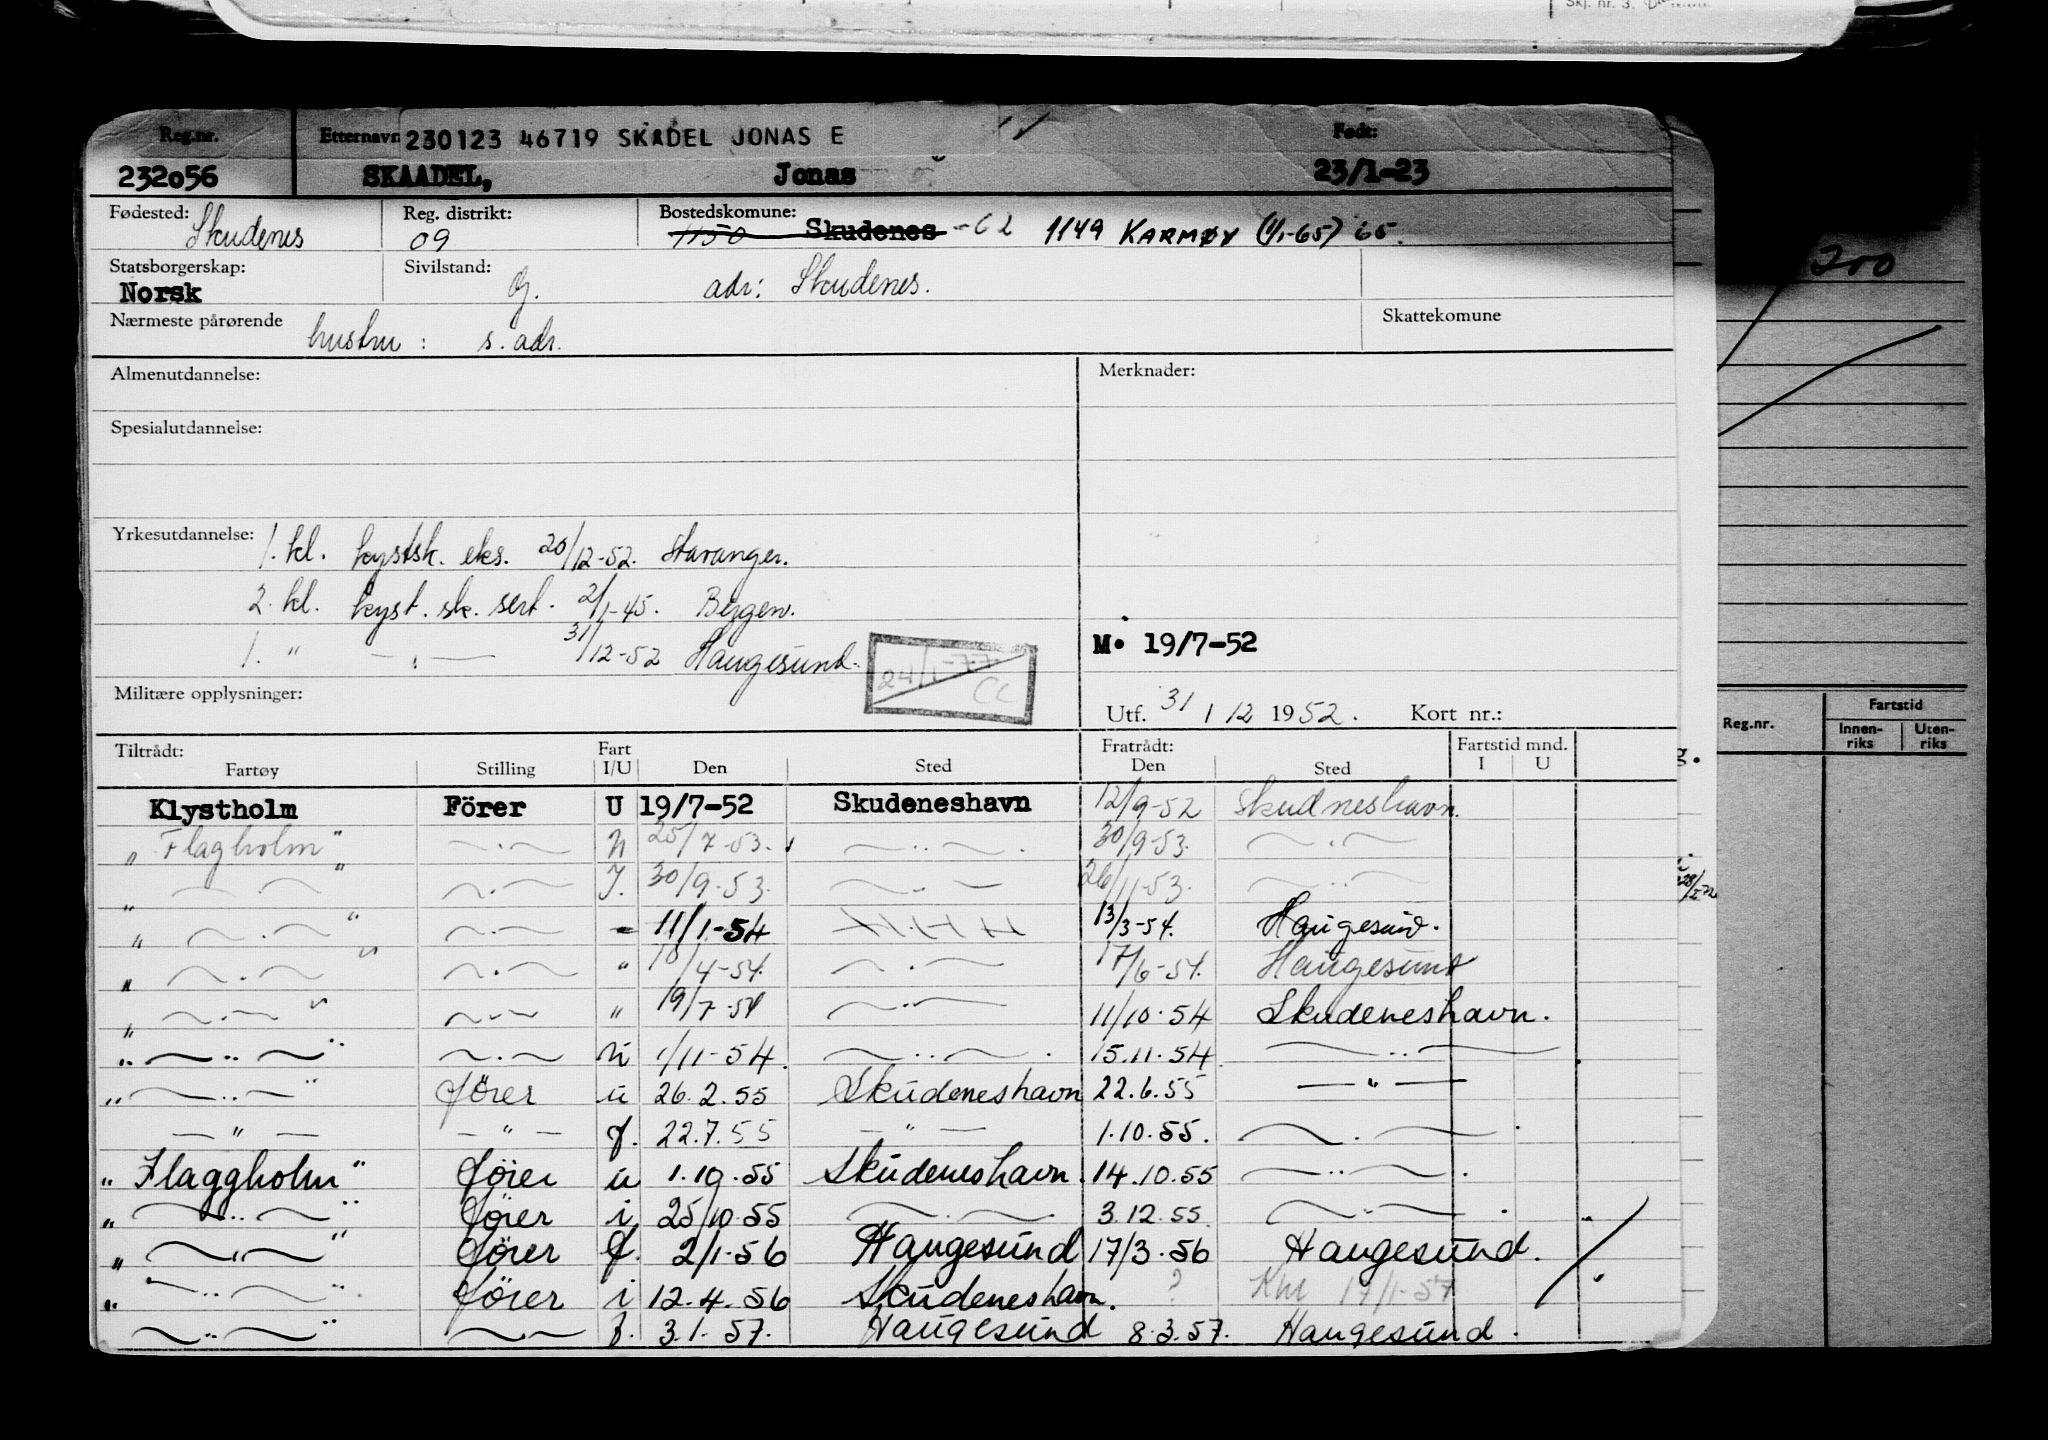 Skj. nr. 3.
Reg.nr. Etternavn 230123 46719 SKADEL JONAS E Født:
232056 SKAADEL, Jonas 23/1-23
Fødested: Skudenes Reg. distrikt: 09 Bostedskomune: 1150 Skudenes -62 1149 KARMØY (1/1-65) 65.
Statsborgerskap: Norsk Sivilstand: g. adr: Skudenes.
Nærmeste pårørende hustru: s. adr. Skattekomune
Almenutdannelse: Merknader:
Spesialutdannelse:
Yrkesutdannelse: 1. kl. kystsk. eks. 20/12-52. Stavanger.
2. kl. kyst. sk. sert. 2/1-45. Bergen.
1. " — " — 31/12-52 Haugesund.
24/1-77 CC
M. 19/7-52
Militære opplysninger: Utf. 31 / 12 1952. Kort nr.:
Tiltrådt: Fratrådt: Fartstid mnd.
Fartøy Stilling Fart I/U Den Sted Den Sted I U
Klystholm Förer U 19/7-52 Skudeneshavn 12/9-52 Skudneshavn.
" Flagholm" — " — U 25/7-53. — " — 30/9-53. — " —
" — " — " — " — I. 30/9-53. — " — 26/11-53. — " —
" — " — " — " — - 11/1-54 13/3-54. Haugesund.
" — " — " — " — " 18/4-54. — " — 17/6-54. Haugesund
" — " — " — " — " 19/7-54 — " — 11/10-54 Skudeneshavn.
" — " — " — " — u 1/11-54. — " — 15.11.54 — " —
" — " — " förer u 26.2.55 Skudeneshavn 22.6.55 — " —
— " — — " — f. 22.7.55 — " — 1.10.55. — " —
" Flaggholm" förer u 1.10.55 Skudeneshavn. 14.10.55 — " —
" — " — " förer i 25/10.55 — " — 3.12.55. — " —
" — " — " förer f. 2/1-56 Haugesund 17/3.56 Haugesund.
" — " — " förer i 12.4.56 Skudeneshavn. ? Khr 17/1-57
" — " — " — " — f. 3.1.57. Haugesund 8.3.57. Haugesund.
200
Reg.nr. Fartstid
Innenriks Utenriks